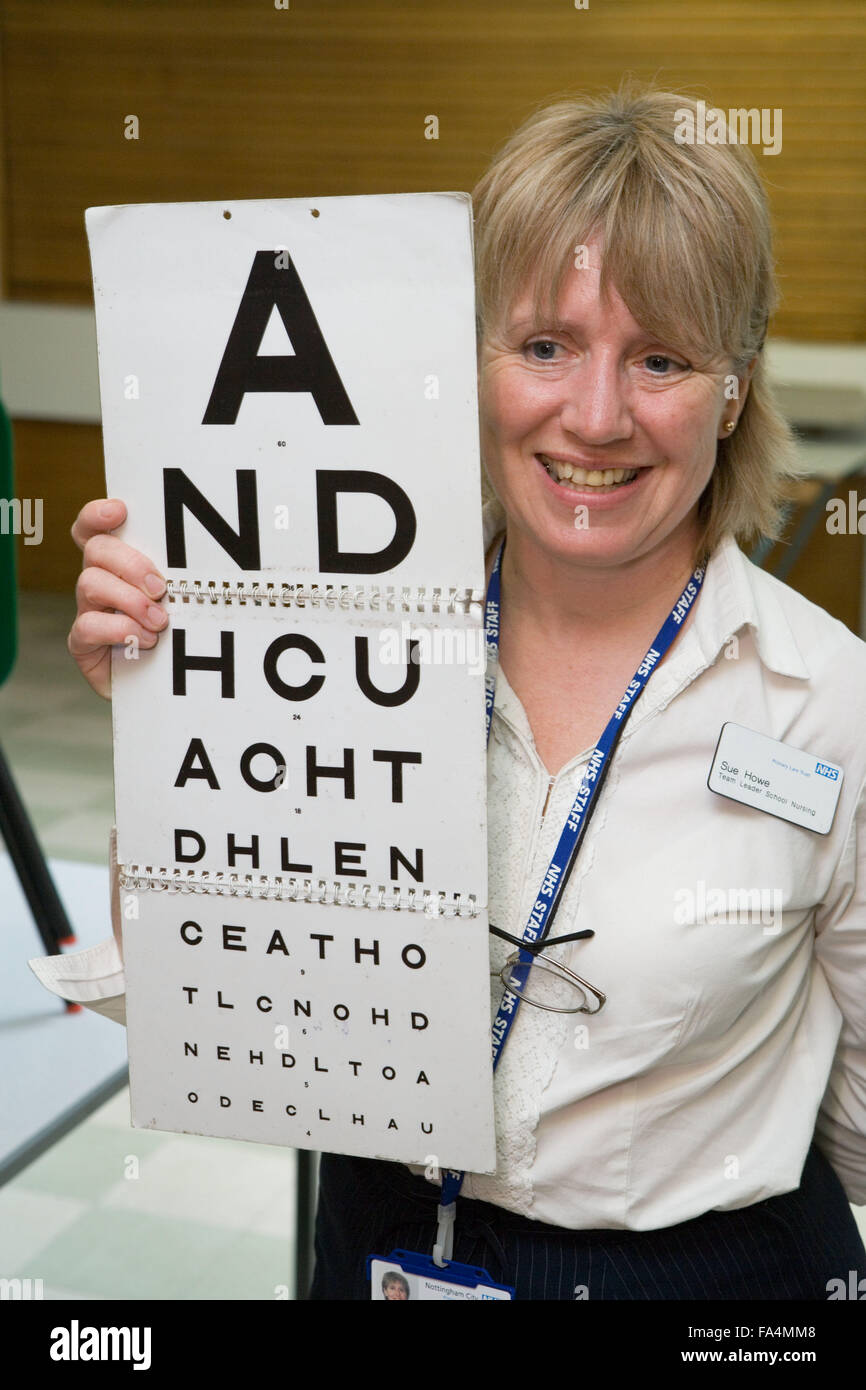 A
60
N D
36
H C U
24
A O H T
18
D H L E N
C E A T H O
9
T L C N O H D
6
N E H D L T O A
5
A O D E C L H A U
4
NHS STAFF
NHS STAFF
NHS STAFF
NHS STAFF
Primary Care Trust NHS
Sue Howe
Team Leader School Nursing
Nottingham City
alamy
alamy
a
Image ID: FA4MM8
www.alamy.com